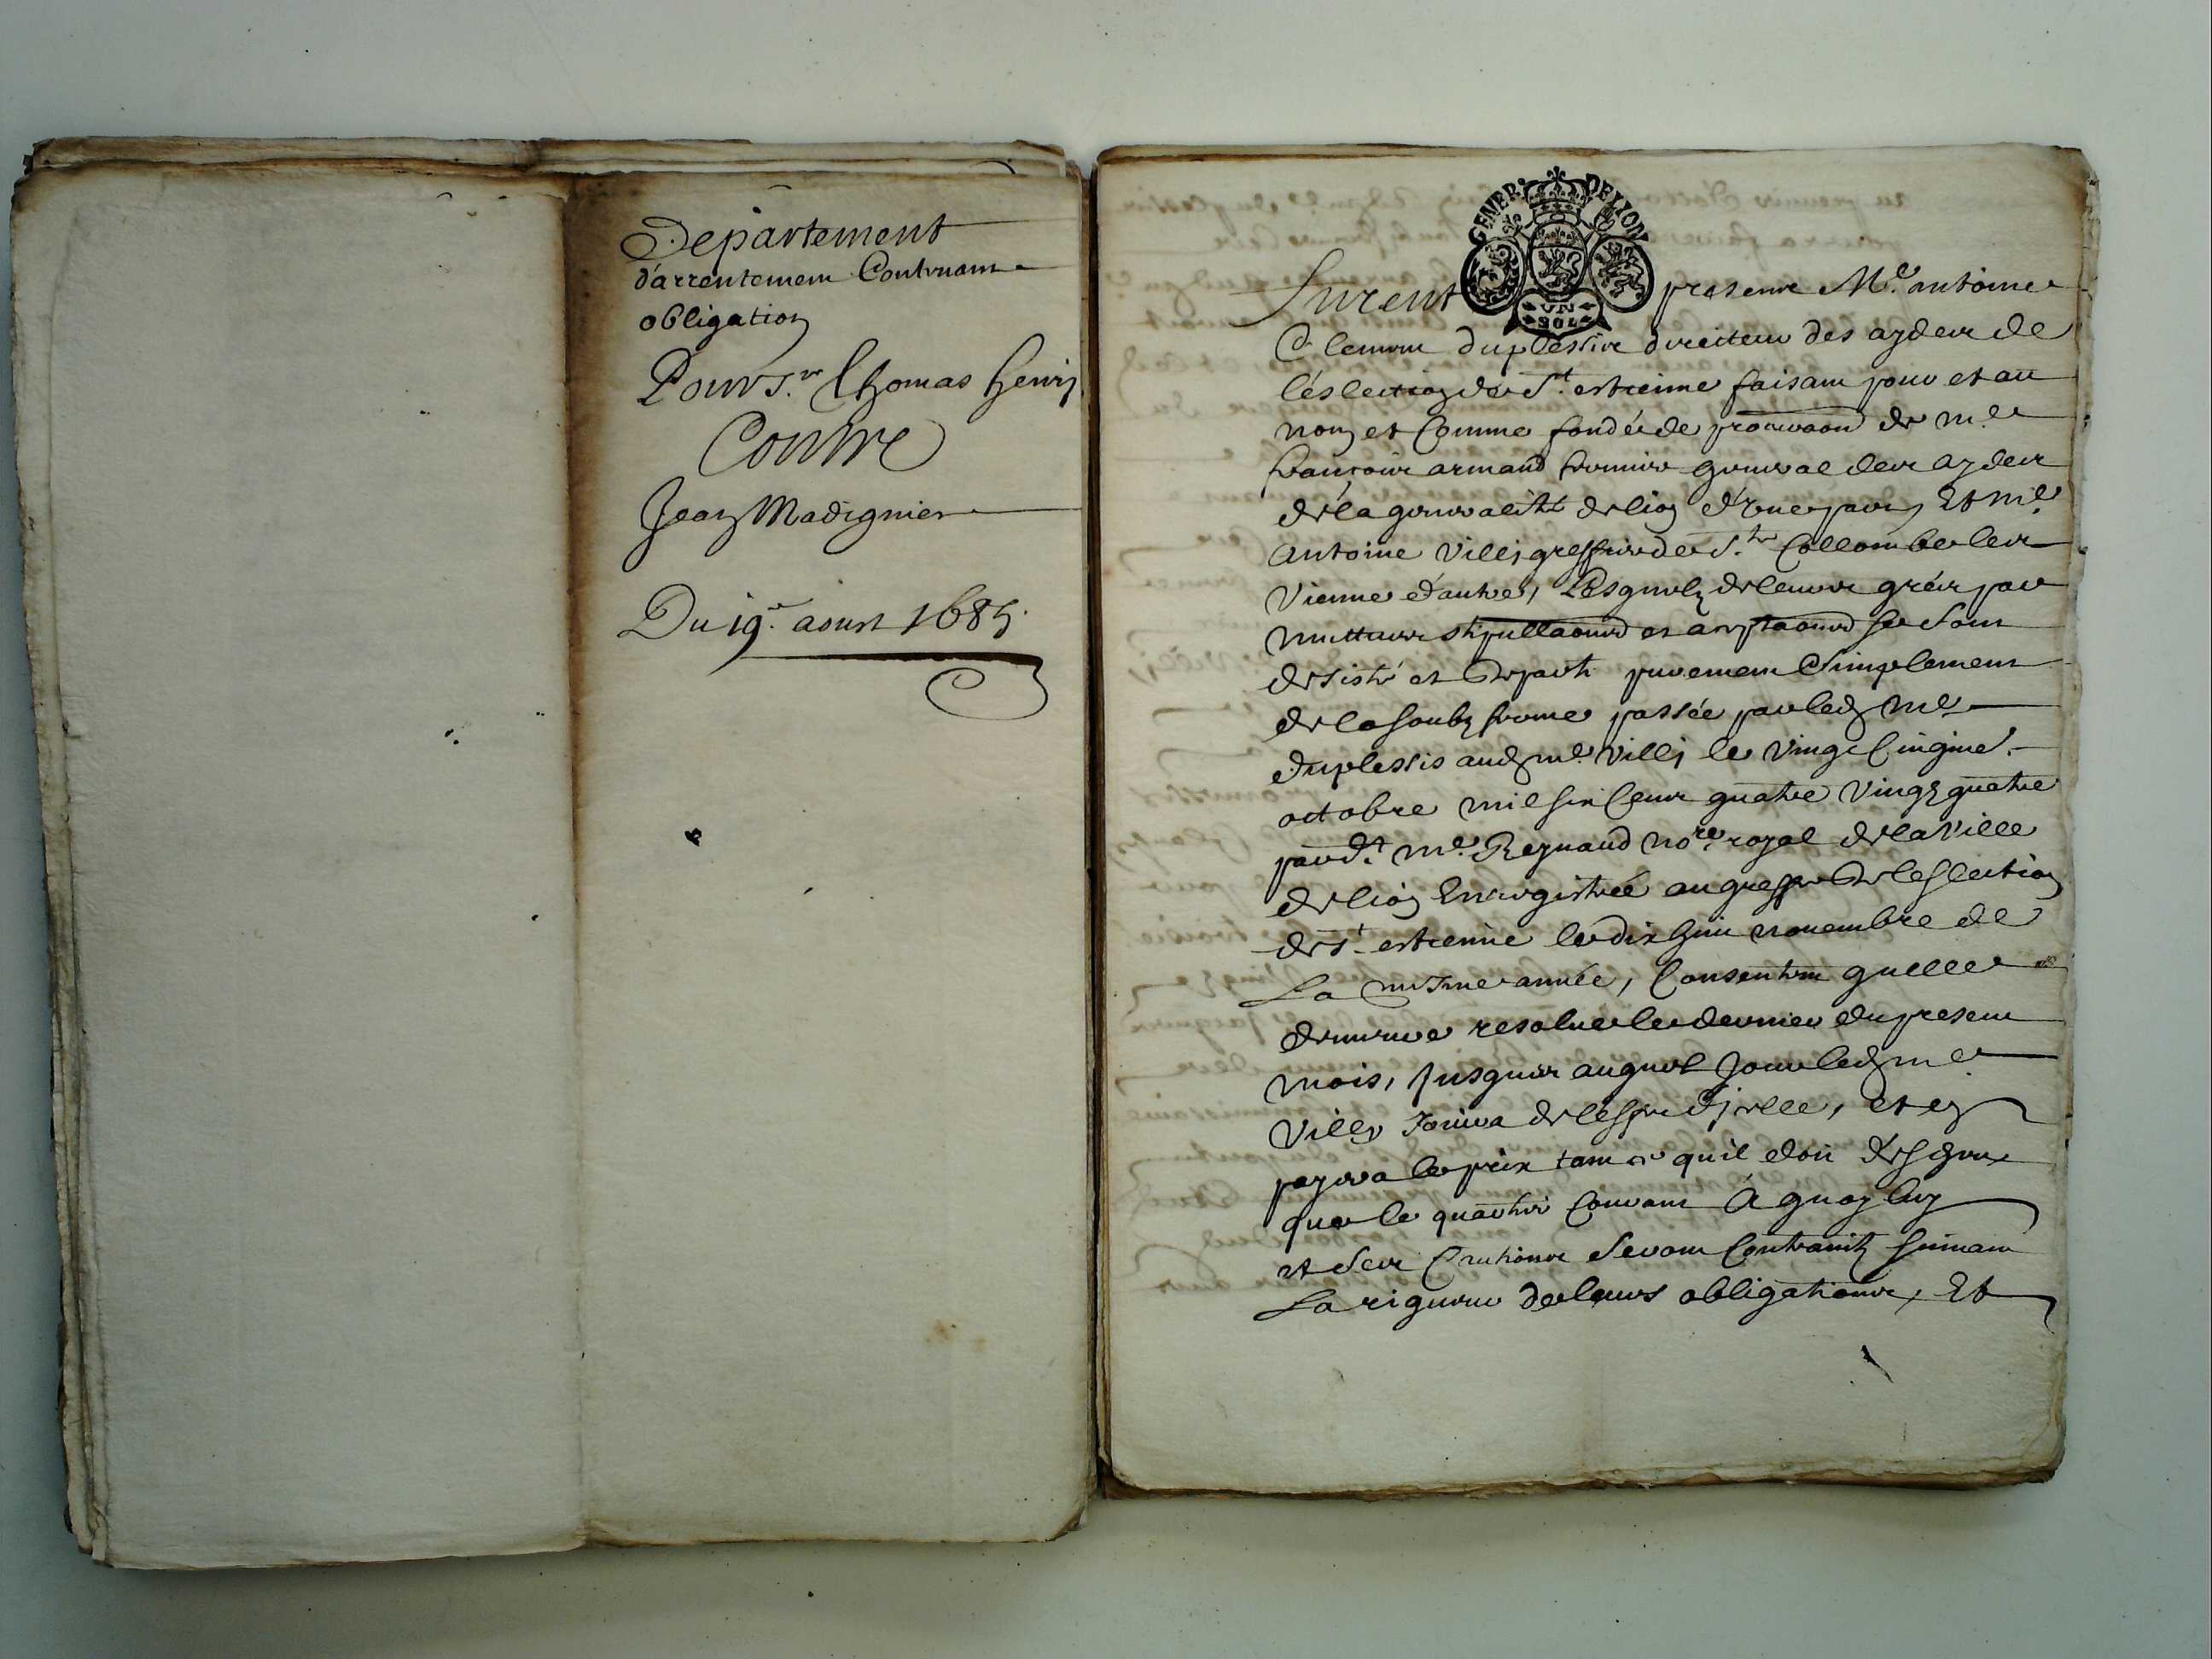 Departement
d'arrentemem Contenam
obligation
Pour S.r Thomas henry
Contre
Jean Madignier
Du 19.e aoust 1685.
GENER. DE LION
UN SOL
Furent presens Me. antoine
Clemens duplessis directeur des aydes de
léslection de St. estienne faisam pour et au
nom et Comme fondé de de me.
françois armand fermier general des aydes
de la generalité de lion d'une part, Et Me.
antoine Villy greffier de S.te Collombe les
Vienne d'autre, Lesquelz de leurs grés par
mutteues et se sont
desisté et departi purement & simplement
de la soubz ferme passée par led Me.
duplessis aud me. Villy le Vingt Cinqme.
octobre mil six Cens quatre Vingz quatre
pard.t Me. Reynaud nore. royal de la Ville
de lion Enregistrée au greffe de leslection
de st. estienne le dix huit novembre de
La mesme année, Consentem quelle
demeure resolue le dernier du present
mois, Jusques auquel Jour led me.
Villy Jouira de leffet dicelle, et en
payera le prix tam ce quil doit desch
que le quartier Couram à quoy luy
et ses Cautions Seront Contraintz suivam
La rigueur de leurs obligations, Et